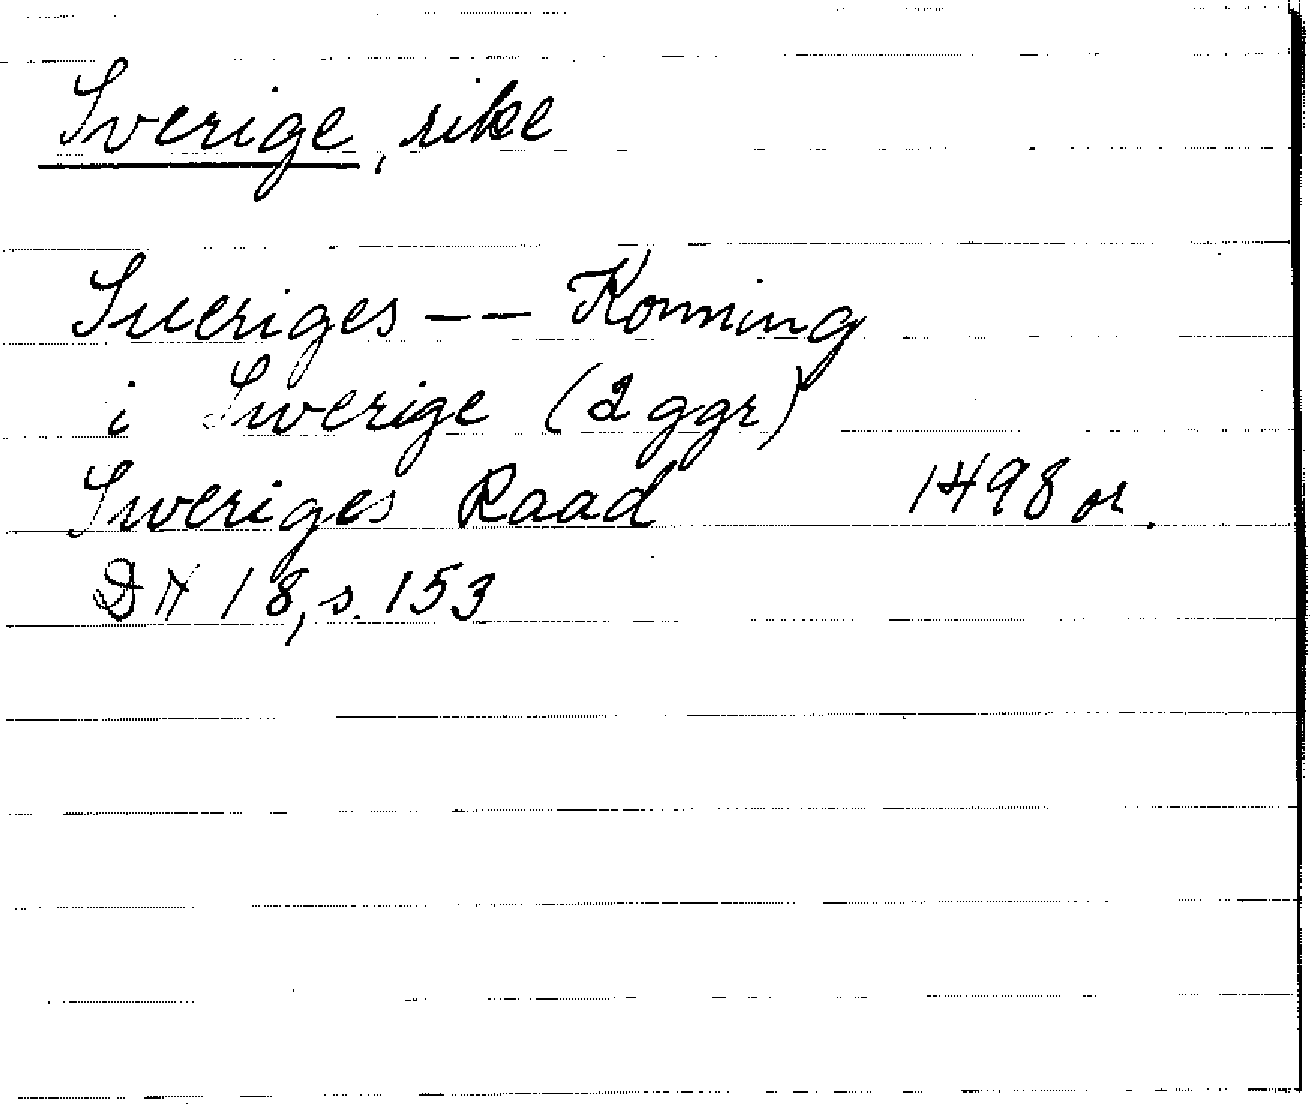 Sverige, rike
Sueriges -- Konning
i Swerige (2 ggr)
Sweriges Raad 1498 or.
DN 18, s. 153